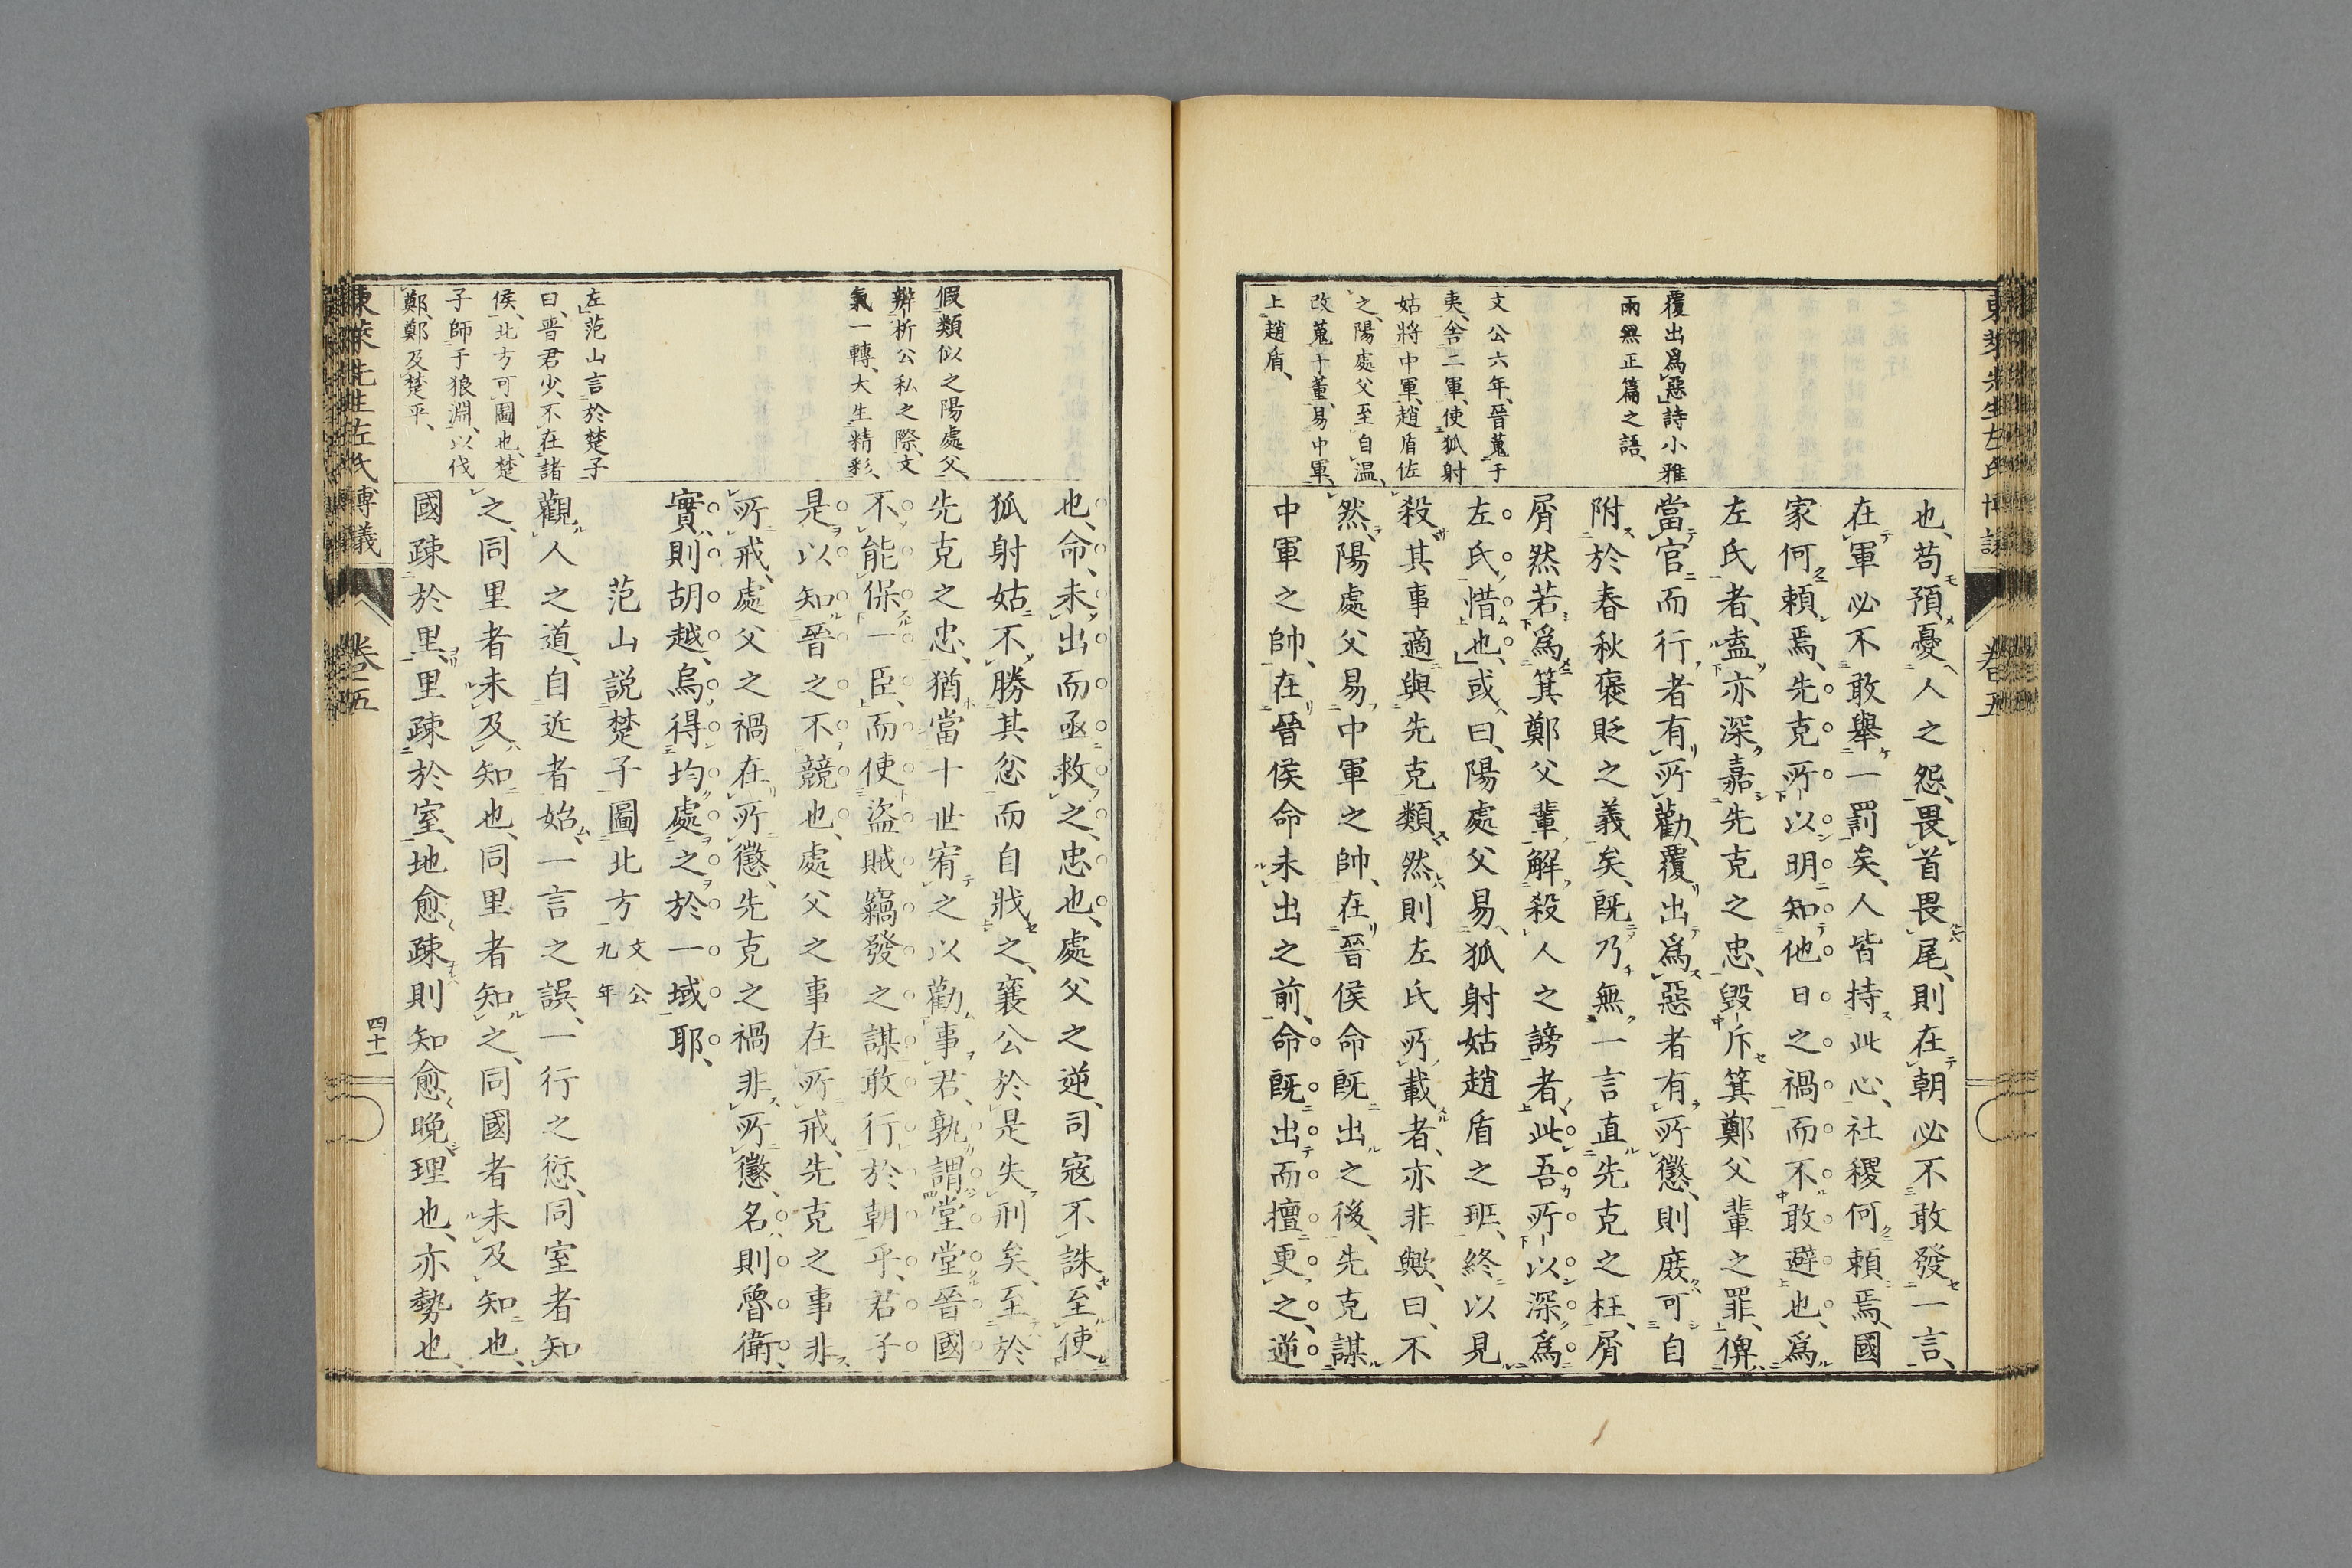 東萊先生左氏博議
卷五
覆出爲惡、詩小雅
雨無正篇之語、
文公六年、晉蒐于
夷、舍二軍、使狐射
姑將中軍、趙盾佐
之、陽處父至自温、
改蒐于董、易中軍、
上趙盾、
也、苟預憂人之怨、畏首畏尾、則在朝必不敢發一言、
在軍必不敢舉一罰矣、人皆持此心、社稷何賴焉、國
家何賴焉、先克所以明知他日之禍而不敢避也、爲
左氏者、盍亦深嘉先克之忠、毀斥箕鄭父輩之罪、俾
當官而行者有所勸、覆出爲惡者有所懲、則庶可自
附於春秋褒貶之義矣、既乃無一言直先克之枉、屑
屑然若爲箕鄭父輩解殺人之謗者、此吾所以深爲
左氏惜也、」或曰、陽處父易狐射姑趙盾之班、終以見
殺、其事適與先克類、然則左氏所載者、亦非歟、曰、不
然、陽處父易中軍之帥、在晉侯命既出之後、先克謀
中軍之帥、在晉侯命未出之前、命既出而擅更之、逆
假類似之陽處父、
辨析公私之際、文
氣一轉、大生精彩、
左范山言於楚子
曰、晋君少、不在諸
侯、北方可圖也、楚
子師于狼淵、以伐
鄭、鄭及楚平、
也、命未出而亟救之、忠也、處父之逆、司寇不誅、至使
狐射姑不勝其忿而自戕之、襄公於是失刑矣、至於
先克之忠、猶當十世宥之以勸事君、孰謂堂堂晉國
不能保一臣、而使盜賊竊發之謀敢行於朝乎、君子
是以知晉之不競也、處父之事在所戒、先克之事非
所戒、處父之禍在所懲、先克之禍非所懲、名則魯衛、
實則胡越、烏得均處之於一域耶、
范山説楚子圖北方 文公九年
觀人之道、自近者始、一言之誤、一行之愆、同室者知
之、同里者未及知也、同里者知之、同國者未及知也、
國疎於里、里疎於室、地愈疎則知愈晚、理也、亦勢也、
東萊先生左氏博議
卷五
四十一